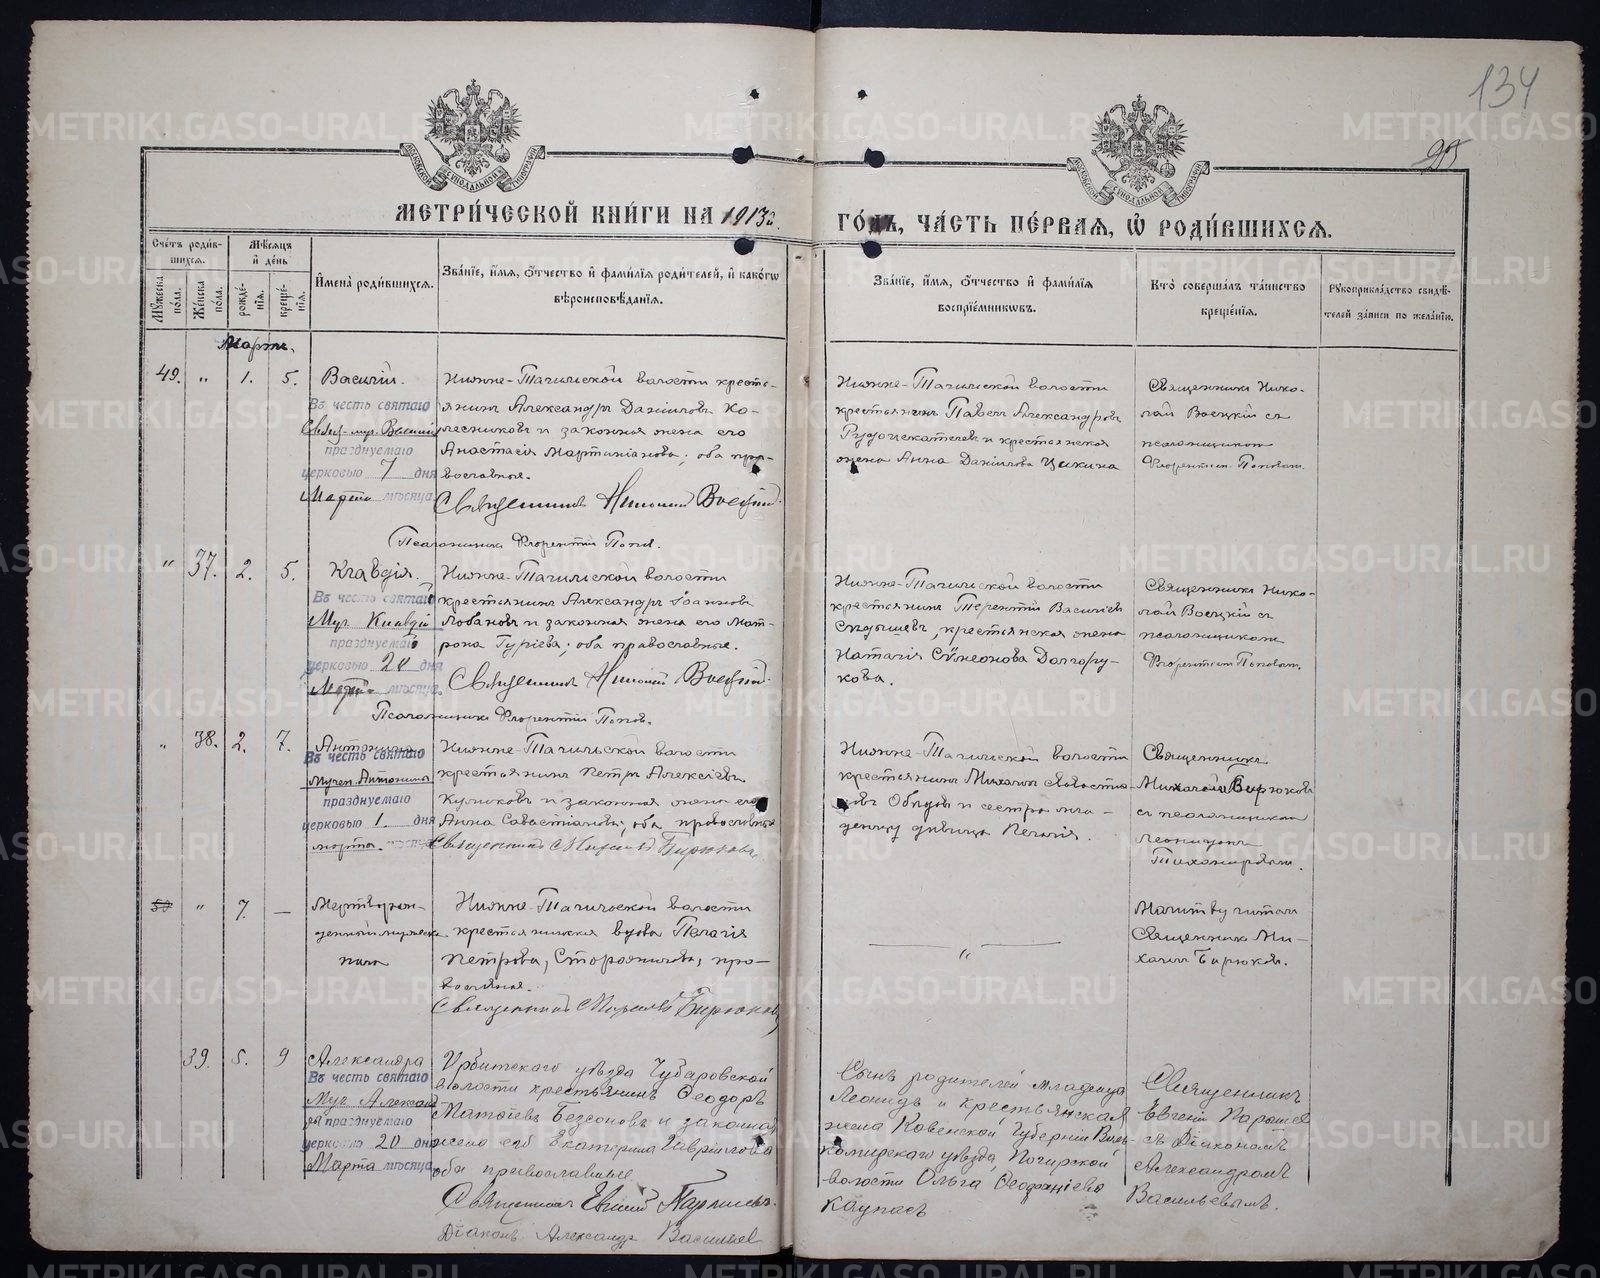 134
25
МЕТРИ́ЧЕСКОЙ КНИ́ГИ НА 1913 г.
ГО́ДЪ, ЧА́СТЬ ПЕ́РВАЯ, Ѡ҆ РОДИ́ВШИХСЯ.
Сче́тъ роди́вшихся.
Мѣ́сяцъ и҆ де́нь
Му́жеска по́ла.
Же́нска по́ла.
рожде́нїя.
креще́нїя.
И҆мена̀ роди́вшихся.
Зва́нїе, и҆́мя, ѻ҆́тчество и҆ фами́лїя роди́телей, и҆ како́гѡ
вѣроисповѣ́данїя.
Зва́нїе, и҆́мя, ѻ҆́тчество и҆ фами́лїя
воспрїе́мникѡвъ.
Кто̀ соверша́лъ та́инство
креще́нїя.
Рукоприкла́дство свидѣ́телей за́писи по жела́нїю.
Мартъ.
49. " 1. 5. Василій.
Въ честь святаго
Свящ-муч. Василія
празднуемаго
церковью 7 дня
Марта мѣсяца.
Нижне-Тагильской волости кресть-
янинъ Александръ Даніиловъ Ко-
лесниковъ и законная жена его
Анастасія Мартиніанова; оба пра-
вославные.
Священникъ Николай Воецкій.
Псаломщикъ Флорентій Поповъ.
Нижне-Тагильской волости
крестьянинъ Павелъ Александровъ
Рудоискателевъ и крестьянская
жена Анна Даніилова Цикина
Священникъ Нико-
лай Воецкій съ
псаломщикомъ
Флорентіемъ Поповымъ.
" 37. 2. 5. Клавдія.
Въ честь святаго
Муч. Клавдіи
празднуемаго
церковью 20 дня
Марта мѣсяца.
Нижне-Тагильской волости
крестьянинъ Александръ Іоанновъ
Лобановъ и законная жена его Мат-
рона Гуріева; оба православные.
Священникъ Николай Воецкій.
Псаломщикъ Флорентій Поповъ.
Нижне-Тагильской волости
крестьянинъ Терентій Василіевъ
Сѣдышевъ, крестьянская жена
Наталія Сѵмеонова Долгору-
кова.
Священникъ Нико-
лай Воецкій съ
псаломщикомъ
Флорентіемъ Поповымъ.
" 38. 2. 7. Антонина
Въ честь святаго
Мучен. Антонины
празднуемаго
церковью 1. дня
марта. мѣсяца
Нижне-Тагильской волости
крестьянинъ Петръ Алексіевъ
Куликовъ и законная жена его
Анна Савастіанова; оба православные
Священникъ Михаилъ Бирюковъ
Нижне-Тагильской волости
крестьянинъ Михаилъ Савастіа-
новъ и сестра мла-
денцу дѣвица Пелагія.
Священникъ
Михаилъ Бирюковъ
съ псаломщикомъ
Леонидомъ
Тихомировымъ.
50 " 7. — Мертворож-
денный мужеска
пола
Нижне-Тагильской волости
крестьянская вдова Пелагія
Петрова, Сторожилова, пра-
вославная.
Священникъ Михаилъ Бирюковъ
"
Молитву читалъ
Священникъ Ми-
хаилъ Бирюковъ.
39. 5. 9 Александра
Въ честь святаго
Муч Александ
ры празднуемаго
церковью 20 дня
Марта мѣсяца
Ирбитскаго уѣзда Чубаровской
волости крестьянинъ Ѳеодоръ
Матѳіевъ Безсоновъ и законная
жена его Екатерина Гавріилова
оба православные
Священникъ Евгеній Парышевъ.
Діаконъ Александръ Васильевъ
Сынъ родителей младенца
Леонидъ и крестьянская
жена Ковенской Губерніи Виль-
комирскаго уѣзда, Погирской
волости Ольга Ѳеофаніева
Каупасъ
Священникъ
Евгеній Парышевъ
съ Діакономъ
Александромъ
Васильевымъ.